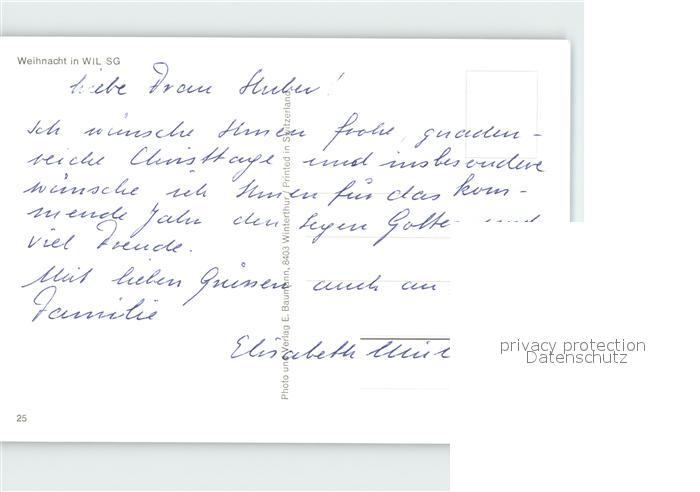 Weihnacht in WIL SG
Liebe Frau Huber!
Ich wünsche Ihnen frohe, gnaden-
reiche Christtage und insbesondere
wünsche ich Ihnen für das kom-
mende Jahr den Segen Gottes und
viel Freude.
Mit lieben Grüssen auch an
Familie
Elisabeth
Photo und Verlag E. Baumann, 8403 Winterthur / Printed in Switzerland
25
privacy protection
Datenschutz